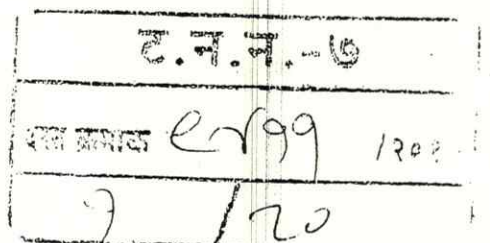 ट.न.न.-७
दस्त क्रमांक ९४११ /२०१
१/२०